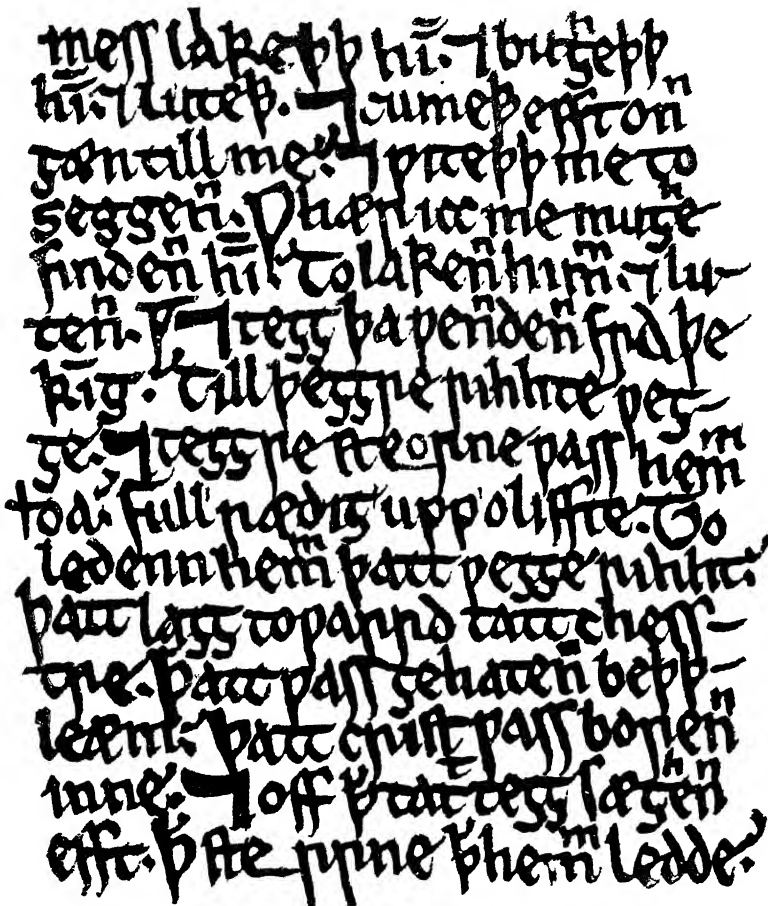 mess lakeþþ hī. ⁊ buȝheþþ
hī. ⁊ luteþ. ⁊ cumeþ efft onn
ȝæn till me. ⁊ ƿiteþþ me to
seggenn. Ƿhær icc me muȝhe
findenn hī. To lakenn himm. ⁊ lu-
tenn. ⁊ teȝȝ þa ƿenndenn frā þe
kīg. Till þeȝȝre rihhte ƿeȝ-
ȝe. ⁊ teȝȝre steorrne ƿass hemm
þoa. full rædiȝ upp o liffte. To
ledenn hemm þatt ƿeȝȝe rihht.
þatt laȝȝ toƿarrd tatt chess-
tre. þatt ƿass ȝehatenn beþþ-
leæm. þatt crist ƿass borenn
inne. ⁊ off þ tatt teȝȝ sæȝhenn
efft. þ ste rrne þ hemm ledde.